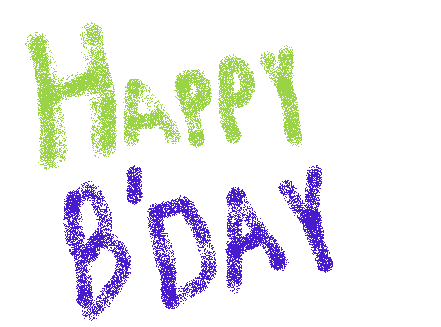 HAPPY
B'DAY